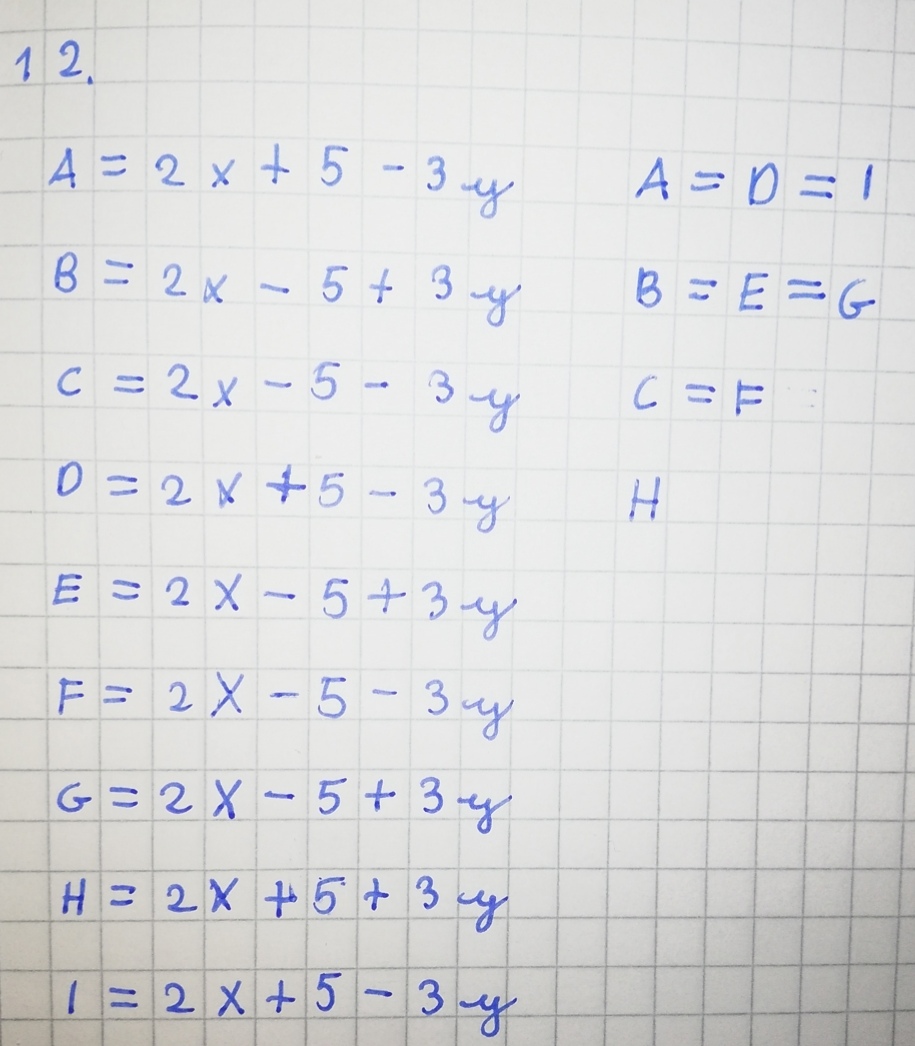 12.
A = 2x + 5 - 3y A = D = I
B = 2x - 5 + 3y B = E = G
C = 2x - 5 - 3y C = F
D = 2x + 5 - 3y H
E = 2x - 5 + 3y
F = 2x - 5 - 3y
G = 2x - 5 + 3y
H = 2x + 5 + 3y
I = 2x + 5 - 3y